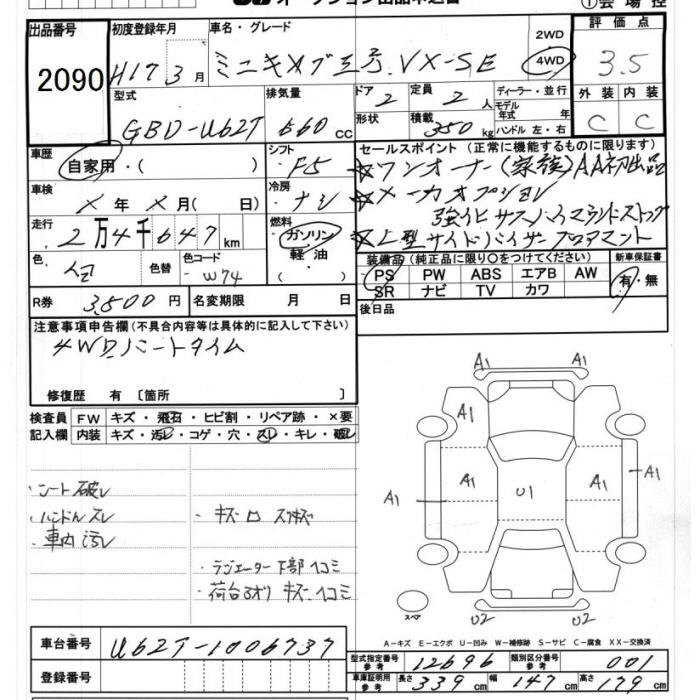 オークション出品申込書
①会場控
出品番号
2090
初度登録年月
H17 3月
車名・グレード
ミニキャブ三号.VX-SE
2WD
4WD
評価点
3.5
外装 内装
C C
型式
GBD-U62T
排気量
660 cc
ドア
2
形状
定員
2 人
積載
350 kg
ディーラー・並行
モデル年式 年
ハンドル 左・右
車歴
自家用・( )
シフト
F5
セールスポイント (正常に機能するものに限ります)
☆ワンオーナー(家族)AA初出品
☆メーカオプション
☆上型サイドバイザーフロアマット
車検
×年 ×月( 日)
冷房
ナシ
走行
2万4千647km
燃料
ガソリン
軽油
・( )
色
色替
色コード
W74
装備品(純正品に限り〇をつけてください)
PS PW ABS エアB AW
SR ナビ TV カワ
新車保証書
有・無
R券 3,500円
名変期限 月 日
後日品
注意事項申告欄(不具合内容等は具体的に記入して下さい)
4WDパートタイム
修復歴 有〔箇所 〕
検査員 FW キズ・飛石・ヒビ割・リペア跡・×要
記入欄 内装 キズ・汚レ・コゲ・穴・スレ・キレ・破レ
・シート破レ
・ハンドルスレ
・車内汚レ
・キズ
・ラジエーター下部凹コミ
・荷台アオリ キズ、凹コミ
A1 A1
A1
A1 A1 U1 A1 A1
U2 U2
スペア
A-キズ E-エクボ U-凹み W-補修跡 S-サビ C-腐食 XX-交換済
車台番号 U62T-1006737
登録番号
型式指定番号 参考 12696
類別区分番号 参考 001
車庫証明用 参考 長さ 339cm 幅 147cm 高さ 179cm